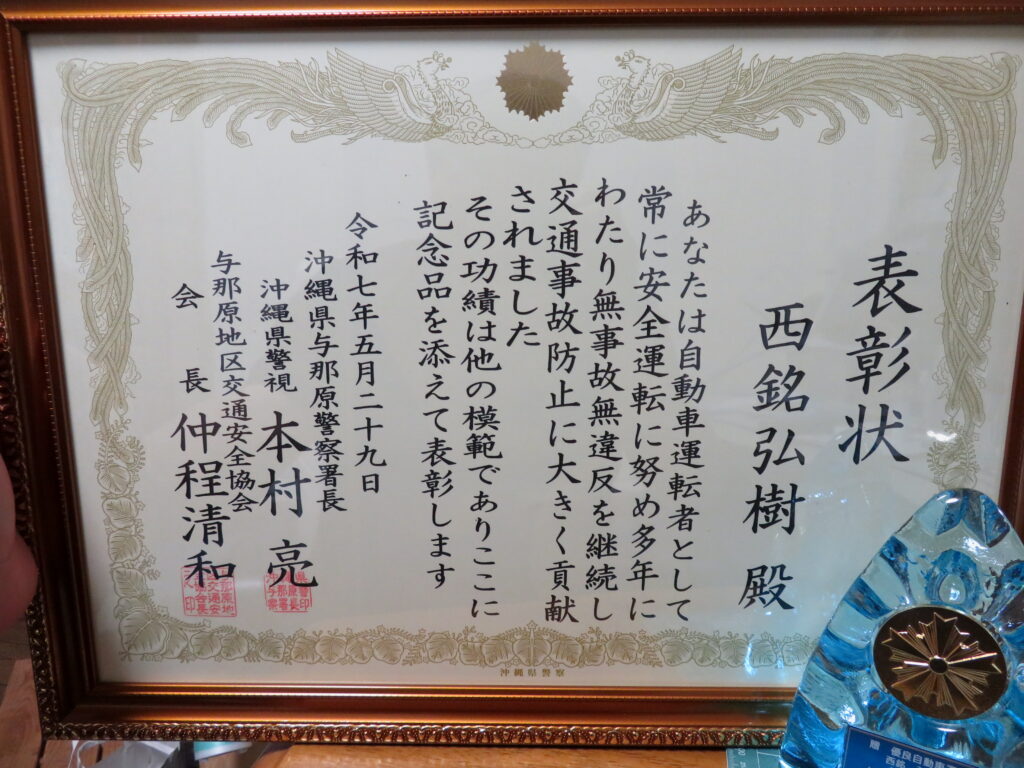 表彰状
西銘弘樹 殿
あなたは自動車運転者として
常に安全運転に努め多年に
わたり無事故無違反を継続し
交通事故防止に大きく貢献
されました
その功績は他の模範でありここに
記念品を添えて表彰します
令和七年五月二十九日
沖縄県与那原警察署長
沖縄県警視 本村 亮
与那原地区交通安全協会
会長 仲程清和
沖縄県警察
贈 優良自動車
西銘